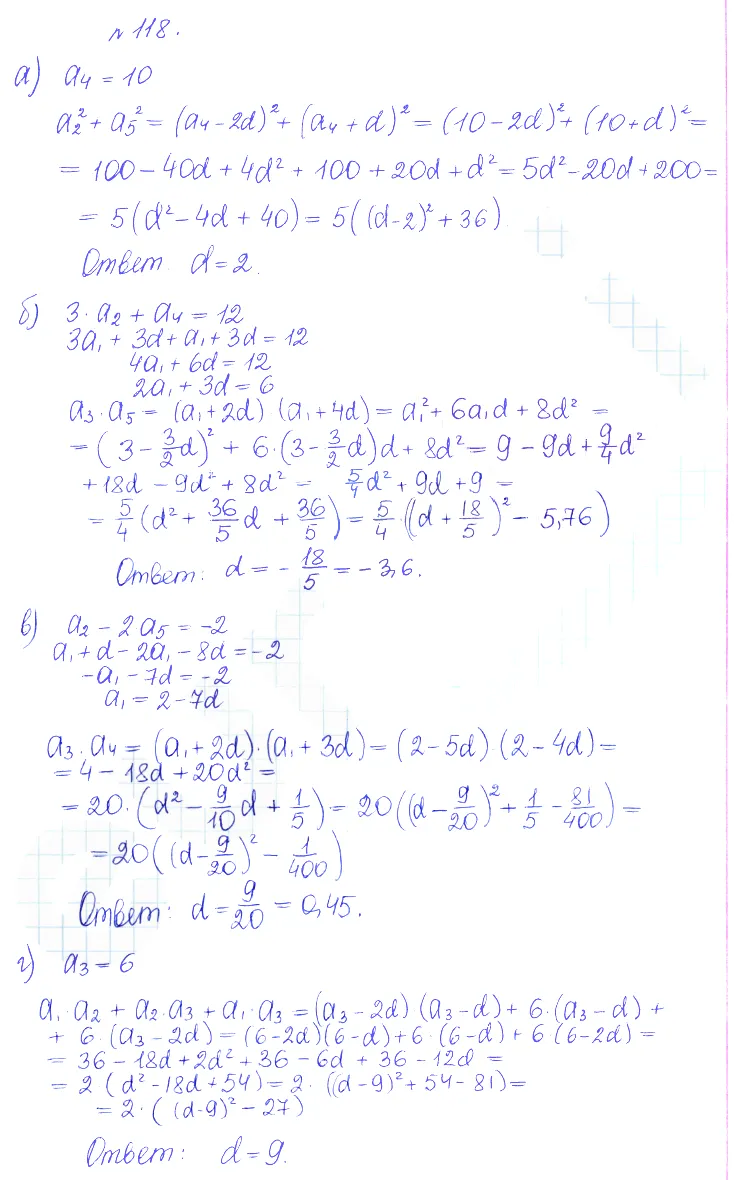 № 118.
а) a₄ = 10
a₂² + a₅² = (a₄ - 2d)² + (a₄ + d)² = (10 - 2d)² + (10 + d)² =
= 100 - 40d + 4d² + 100 + 20d + d² = 5d² - 20d + 200 =
= 5(d² - 4d + 40) = 5((d-2)² + 36)
Ответ d = 2.
б) 3·a₂ + a₄ = 12
3a₁ + 3d + a₁ + 3d = 12
4a₁ + 6d = 12
2a₁ + 3d = 6
a₃·a₅ = (a₁+2d)·(a₁+4d) = a₁² + 6a₁d + 8d² =
= (3 - 3/2 d)² + 6·(3 - 3/2 d)d + 8d² = 9 - 9d + 9/4 d²
+ 18d - 9d² + 8d² = 5/4 d² + 9d + 9 =
= 5/4 (d² + 36/5 d + 36/5) = 5/4 ((d + 18/5)² - 5,76)
Ответ: d = - 18/5 = -3,6.
в) a₂ - 2a₅ = -2
a₁ + d - 2a₁ - 8d = -2
-a₁ - 7d = -2
a₁ = 2 - 7d
a₃·a₄ = (a₁+2d)·(a₁+3d) = (2-5d)·(2-4d) =
= 4 - 18d + 20d² =
= 20·(d² - 9/10 d + 1/5) = 20((d - 9/20)² + 1/5 - 81/400) =
= 20((d - 9/20)² - 1/400)
Ответ: d = 9/20 = 0,45.
г) a₃ = 6
a₁·a₂ + a₂·a₃ + a₁·a₃ = (a₃ - 2d)(a₃ - d) + 6·(a₃ - d) +
+ 6·(a₃ - 2d) = (6-2d)(6-d) + 6·(6-d) + 6(6-2d) =
= 36 - 18d + 2d² + 36 - 6d + 36 - 12d =
= 2(d² - 18d + 54) = 2·((d-9)² + 54 - 81) =
= 2·((d-9)² - 27)
Ответ: d = 9.